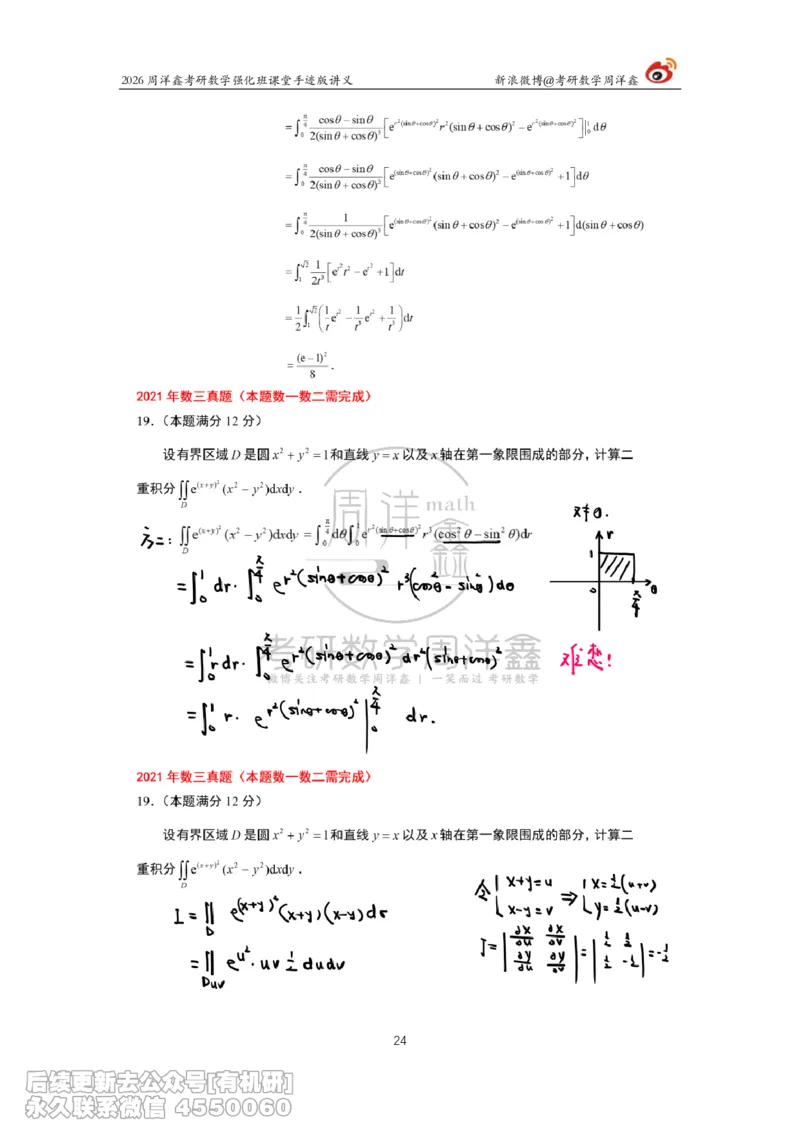 2026 周洋鑫考研数学强化班课堂手迹版讲义 新浪微博@考研数学周洋鑫
=∫_0^{π/4} (cosθ−sinθ)/(2(sinθ+cosθ)^3) [e^{r^2(sinθ+cosθ)^2} r^2(sinθ+cosθ)^2 − e^{r^2(sinθ+cosθ)^2}]|_0^1 dθ
=∫_0^{π/4} (cosθ−sinθ)/(2(sinθ+cosθ)^3) [e^{(sinθ+cosθ)^2}(sinθ+cosθ)^2 − e^{(sinθ+cosθ)^2} +1]dθ
=∫_0^{π/4} 1/(2(sinθ+cosθ)^3) [e^{(sinθ+cosθ)^2}(sinθ+cosθ)^2 − e^{(sinθ+cosθ)^2} +1]d(sinθ+cosθ)
=∫_1^{√2} 1/(2t^3) [e^{t^2}t^2 − e^{t^2} +1]dt
=1/2 ∫_1^{√2} (1/t e^{t^2} − 1/t^3 e^{t^2} + 1/t^3)dt
=(e−1)^2/8 .
2021 年数三真题（本题数一数二需完成）
19.（本题满分 12 分）
设有界区域 D 是圆 x^2 + y^2 = 1 和直线 y = x 以及 x 轴在第一象限围成的部分，计算二
重积分 ∬_D e^{(x+y)^2}(x^2 − y^2)dxdy .
周洋鑫 math
对θ.
方二: ∬_D e^{(x+y)^2}(x^2 − y^2)dxdy = ∫_0^{π/4} dθ∫_0^1 e^{r^2(sinθ+cosθ)^2} r^3(cos^2θ−sin^2θ)dr
r
1
0 π/4 θ
=∫_0^1 dr·∫_0^{π/4} e^{r^2(sinθ+cosθ)^2} r^3(cos^2θ−sin^2θ)dθ
考研数学周洋鑫
=∫_0^1 r dr·∫_0^{π/4} e^{r^2(sinθ+cosθ)^2} dr^2(sinθ+cosθ)^2 难想!
微博关注考研数学周洋鑫 | 一笑而过 考研数学
=∫_0^1 r· e^{r^2(sinθ+cosθ)^2} |_0^{π/4} dr.
2021 年数三真题（本题数一数二需完成）
19.（本题满分 12 分）
设有界区域 D 是圆 x^2 + y^2 = 1 和直线 y = x 以及 x 轴在第一象限围成的部分，计算二
重积分 ∬_D e^{(x+y)^2}(x^2 − y^2)dxdy .
I=∬_D e^{(x+y)^2}(x+y)(x−y)dσ
=∬_{Duv} e^{u^2}·uv 1/2 dudv
令 { x+y=u, x−y=v ⇒ { x=1/2(u+v), y=1/2(u−v)
J=|∂x/∂u ∂x/∂v; ∂y/∂u ∂y/∂v|=|1/2 1/2; 1/2 −1/2|=−1/2
24
后续更新去公众号[有机研]
永久联系微信 4550060